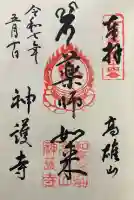 奉拝
高雄山
薬師如来
神護寺
令和七年
五月十日